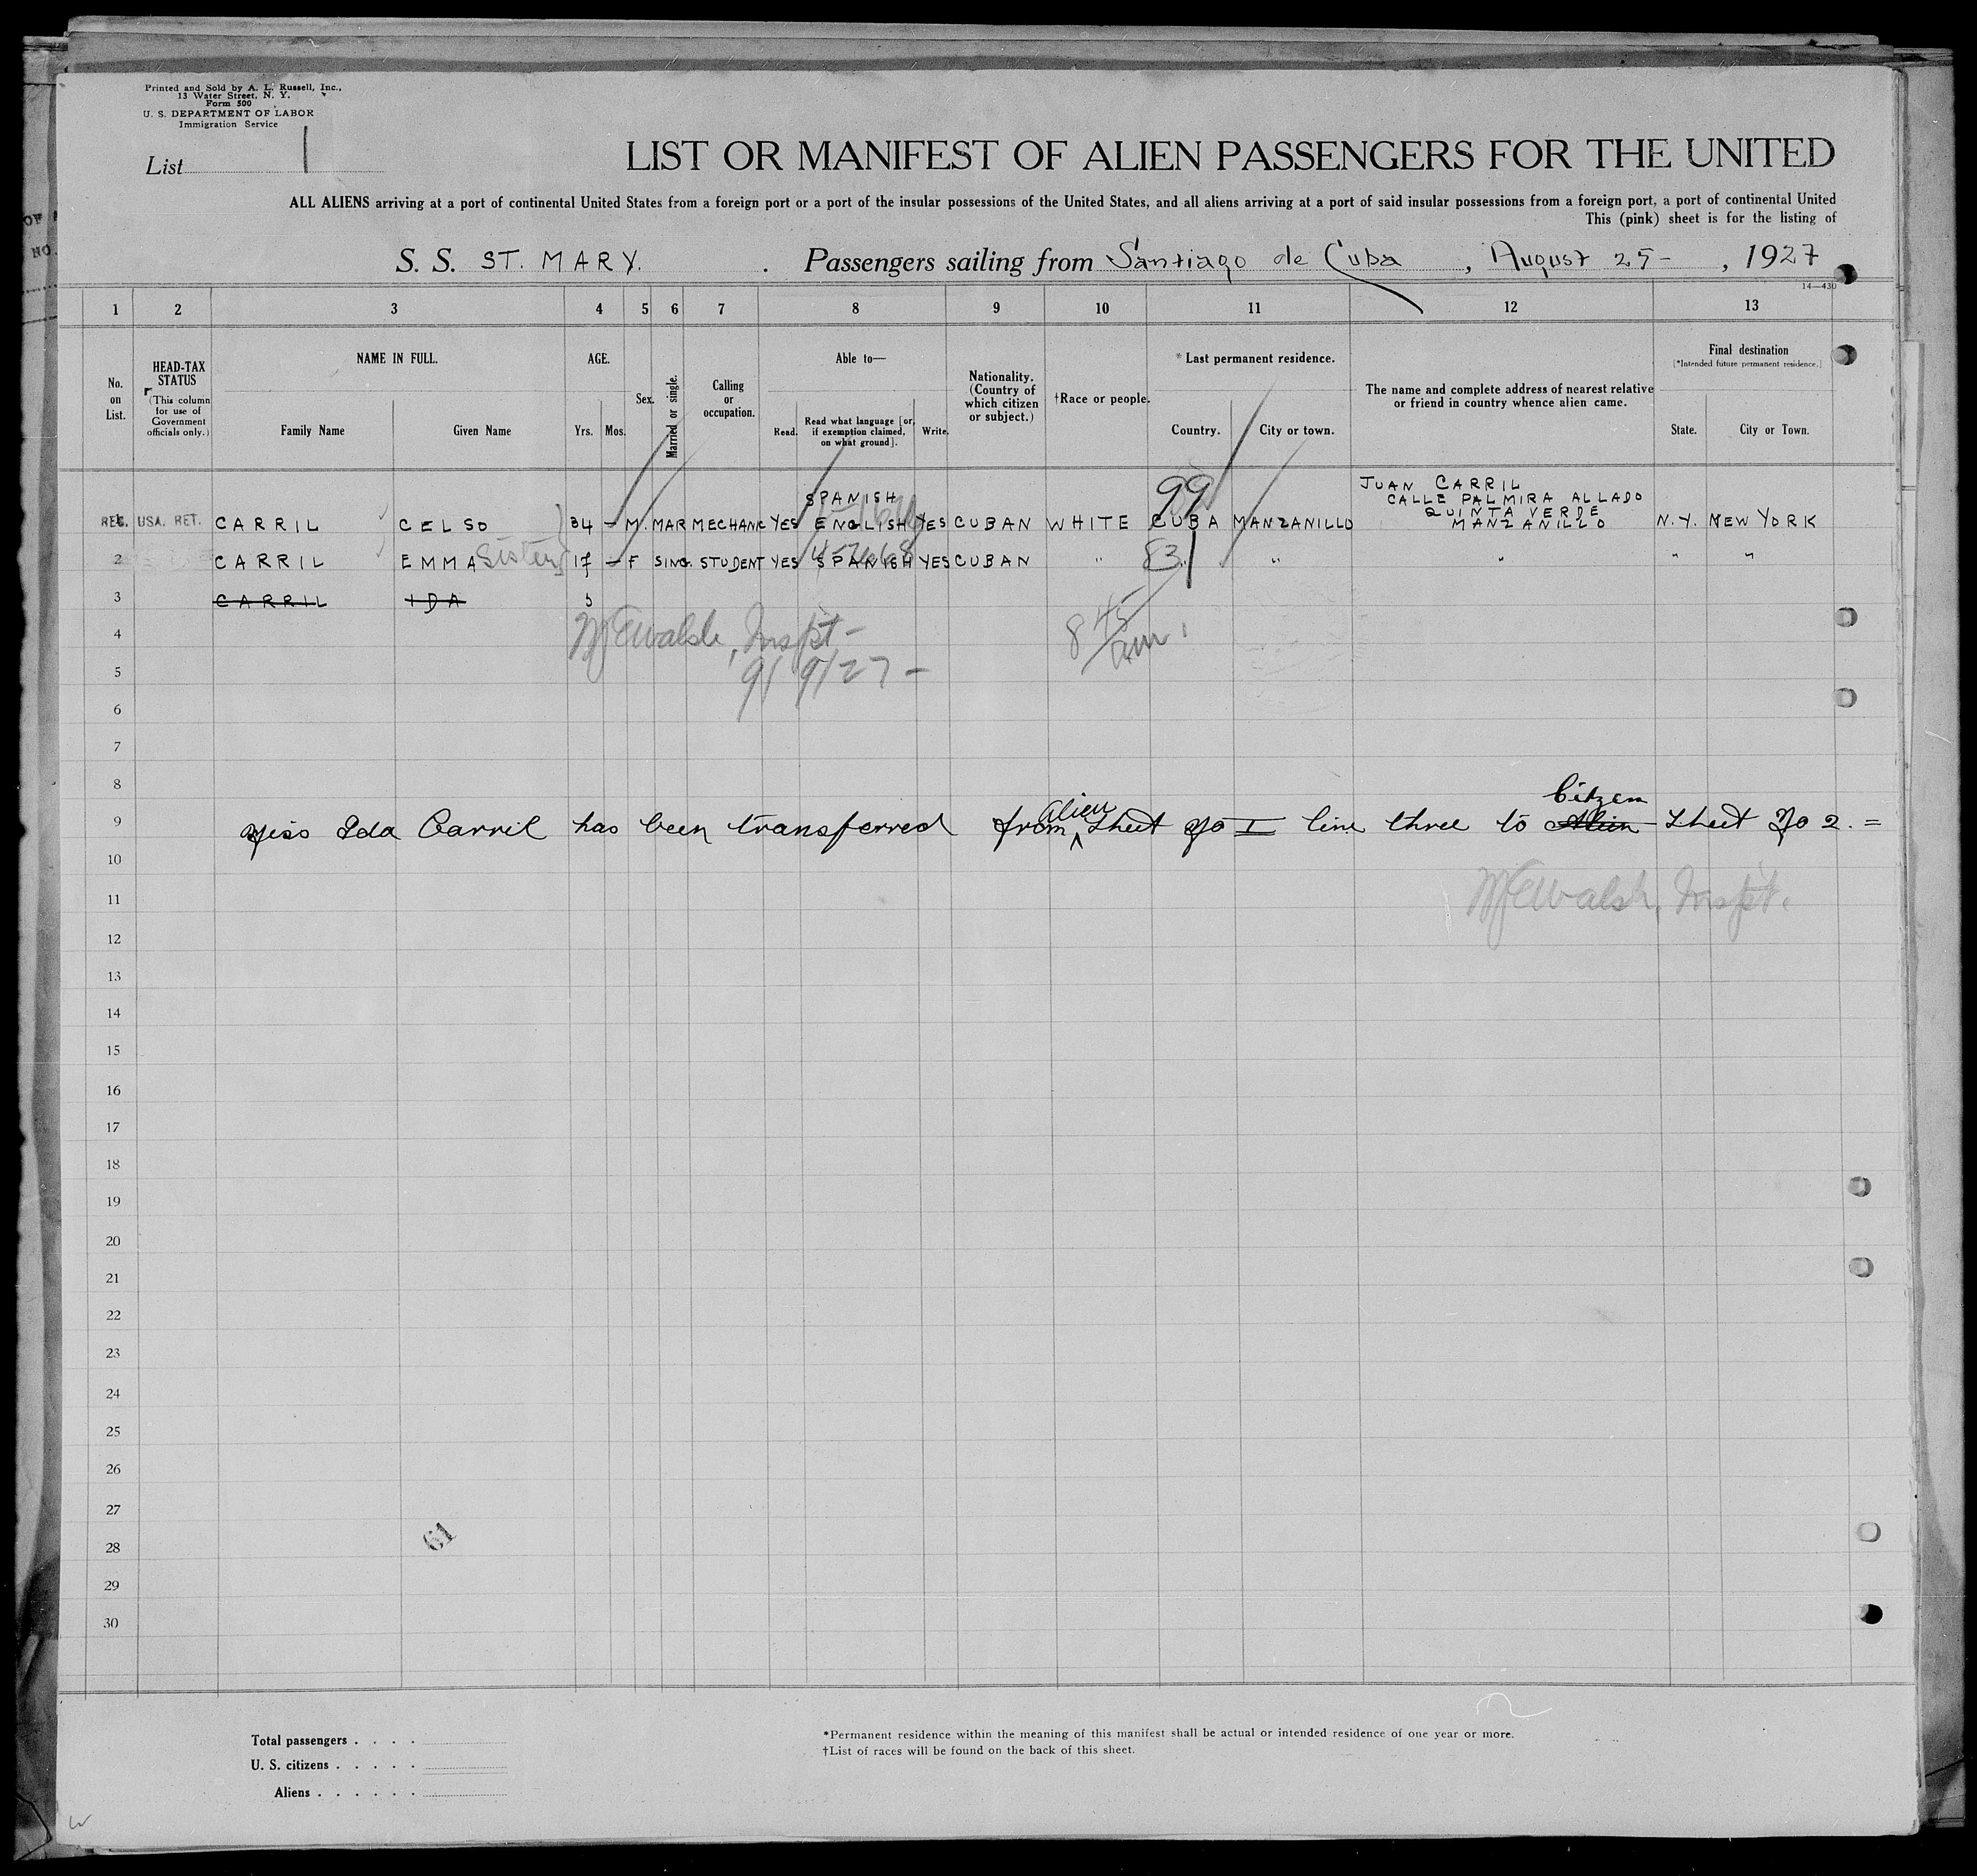 Printed and Sold by A. L. Russell, Inc.,
13 Water Street, N. Y.
Form 500
U. S. DEPARTMENT OF LABOR
Immigration Service
List 1
LIST OR MANIFEST OF ALIEN PASSENGERS FOR THE UNITED
ALL ALIENS arriving at a port of continental United States from a foreign port or a port of the insular possessions of the United States, and all aliens arriving at a port of said insular possessions from a foreign port, a port of continental United
This (pink) sheet is for the listing of
S. S. ST. MARY. Passengers sailing from Santiago de Cuba, August 25-, 1927
14—430
1 2 3 4 5 6 7 8 9 10 11 12 13
No. on List.
HEAD-TAX STATUS (This column for use of Government officials only.)
NAME IN FULL.
Family Name Given Name
AGE.
Yrs. Mos.
Sex.
Married or single.
Calling or occupation.
Able to—
Read. Read what language [or, if exemption claimed, on what ground]. Write.
Nationality. (Country of which citizen or subject.)
†Race or people.
* Last permanent residence.
Country. City or town.
The name and complete address of nearest relative or friend in country whence alien came.
Final destination
[*Intended future permanent residence.]
State. City or Town.
99
SPANISH JUAN CARRIL
CALLE PALMIRA ALLADO
QUINTA VERDE
REG. USA. RET. CARRIL CELSO 34 - M. MAR MECHANC YES ENGLISH YES CUBAN WHITE CUBA MANZANILLO MANZANILLO N.Y. NEW YORK
2 CARRIL EMMA Sister 17 - F SING. STUDENT YES SPANISH YES CUBAN " 83 " " " "
3 CARRIL IDA 5
4 Insp't- 8 45/am
5 9/9/27 -
6
7
8
9 Miss Ida Carril has been transferred from Alien Sheet No I line three to Alien Citizen Sheet No 2. =
10
11 Walsh, Insp't.
12
13
14
15
16
17
18
19
20
21
22
23
24
25
26
27
28 61
29
30
Total passengers . . . .
U. S. citizens . . . . .
Aliens . . . . . .
*Permanent residence within the meaning of this manifest shall be actual or intended residence of one year or more.
†List of races will be found on the back of this sheet.